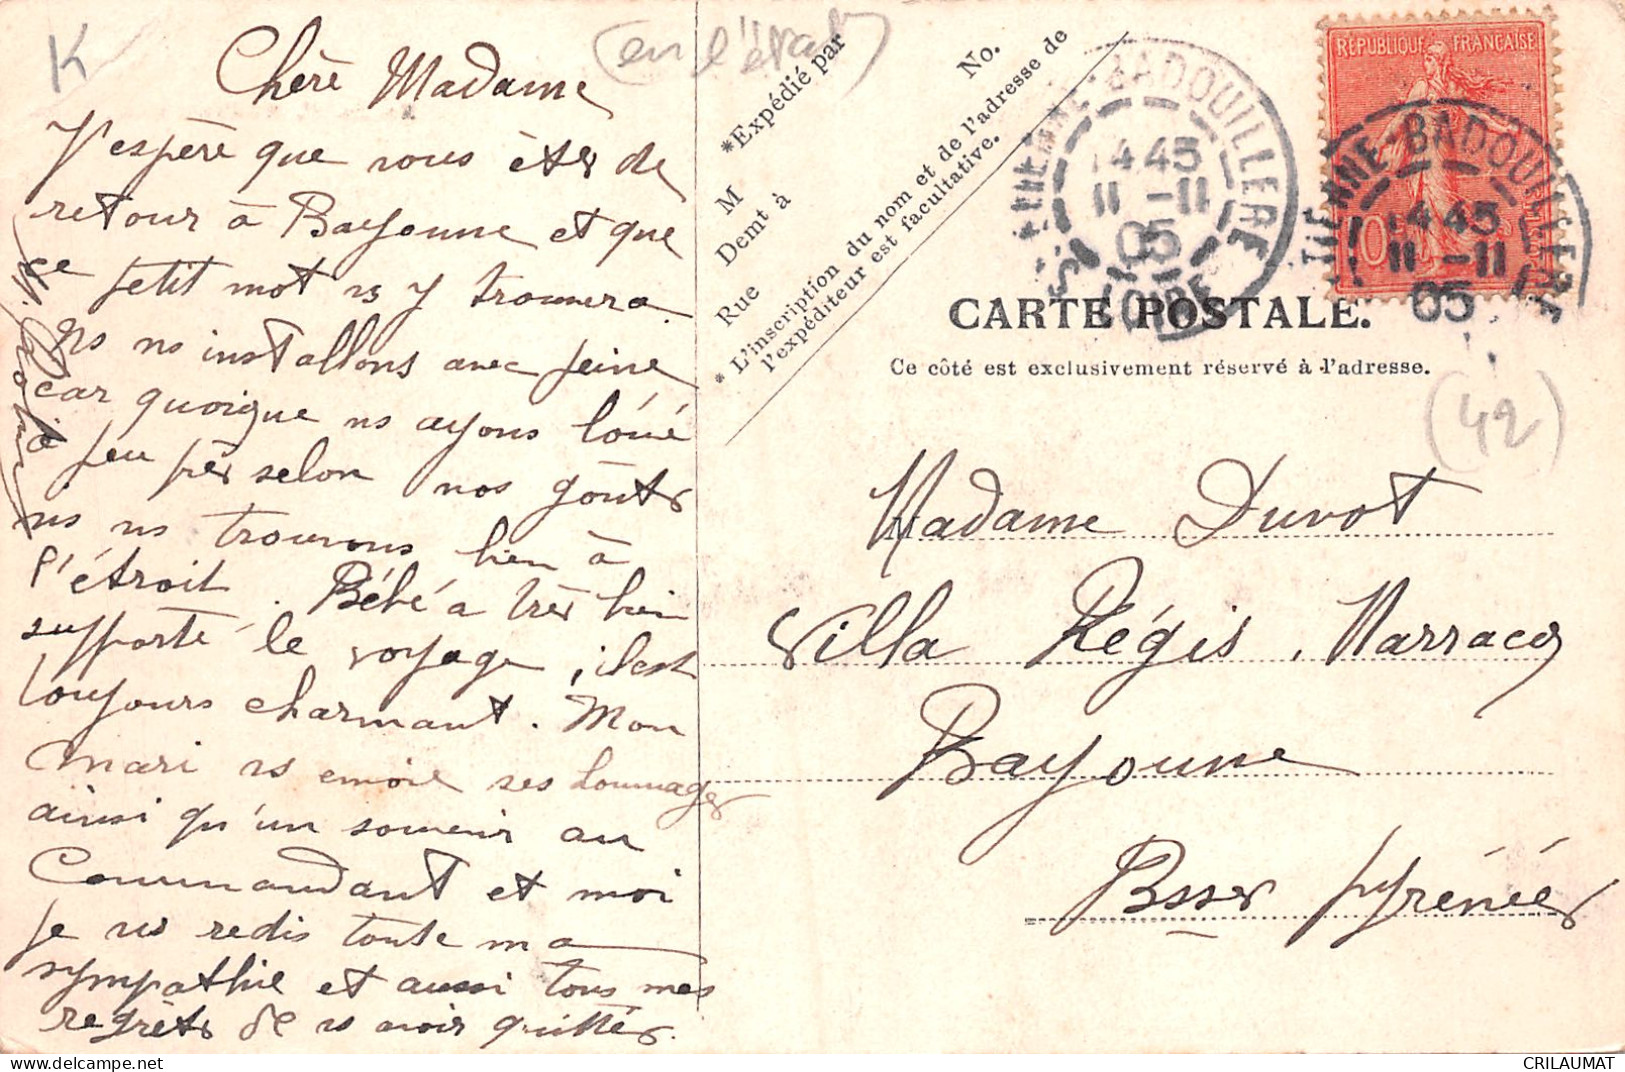 K
(en l'état)
Chère Madame
J'espère que vous êtes de
retour à Bayonne et que
ce petit mot vs y trouvera.
Ns ns installons avec peine
car quoique ns ayons loué
à peu près selon nos goûts
ns ns trouvons bien à
l'étroit. Bébé a très bien
supporté le voyage, il est
toujours charmant. Mon
mari vs envoie ses hommages
ainsi qu'un souvenir au
Commandant et moi
je vs redis toute ma
sympathie et aussi tous mes
regrets de vs avoir quittés.
*Expédié par
M
Demt à
Rue
No.
* L'inscription du nom et de l'adresse de
l'expéditeur est facultative.
RÉPUBLIQUE FRANÇAISE
10
ST ETIENNE-BADOUILLERE
14 45
11 -11
05
LOIRE
TIENNE-BADOUILLERE
14 45
11 -11
05
CARTE POSTALE.
Ce côté est exclusivement réservé à l'adresse.
(42)
Madame Duvot
Villa Régis, Marracq
Bayonne
Bsses Pyrénées
CRILAUMAT